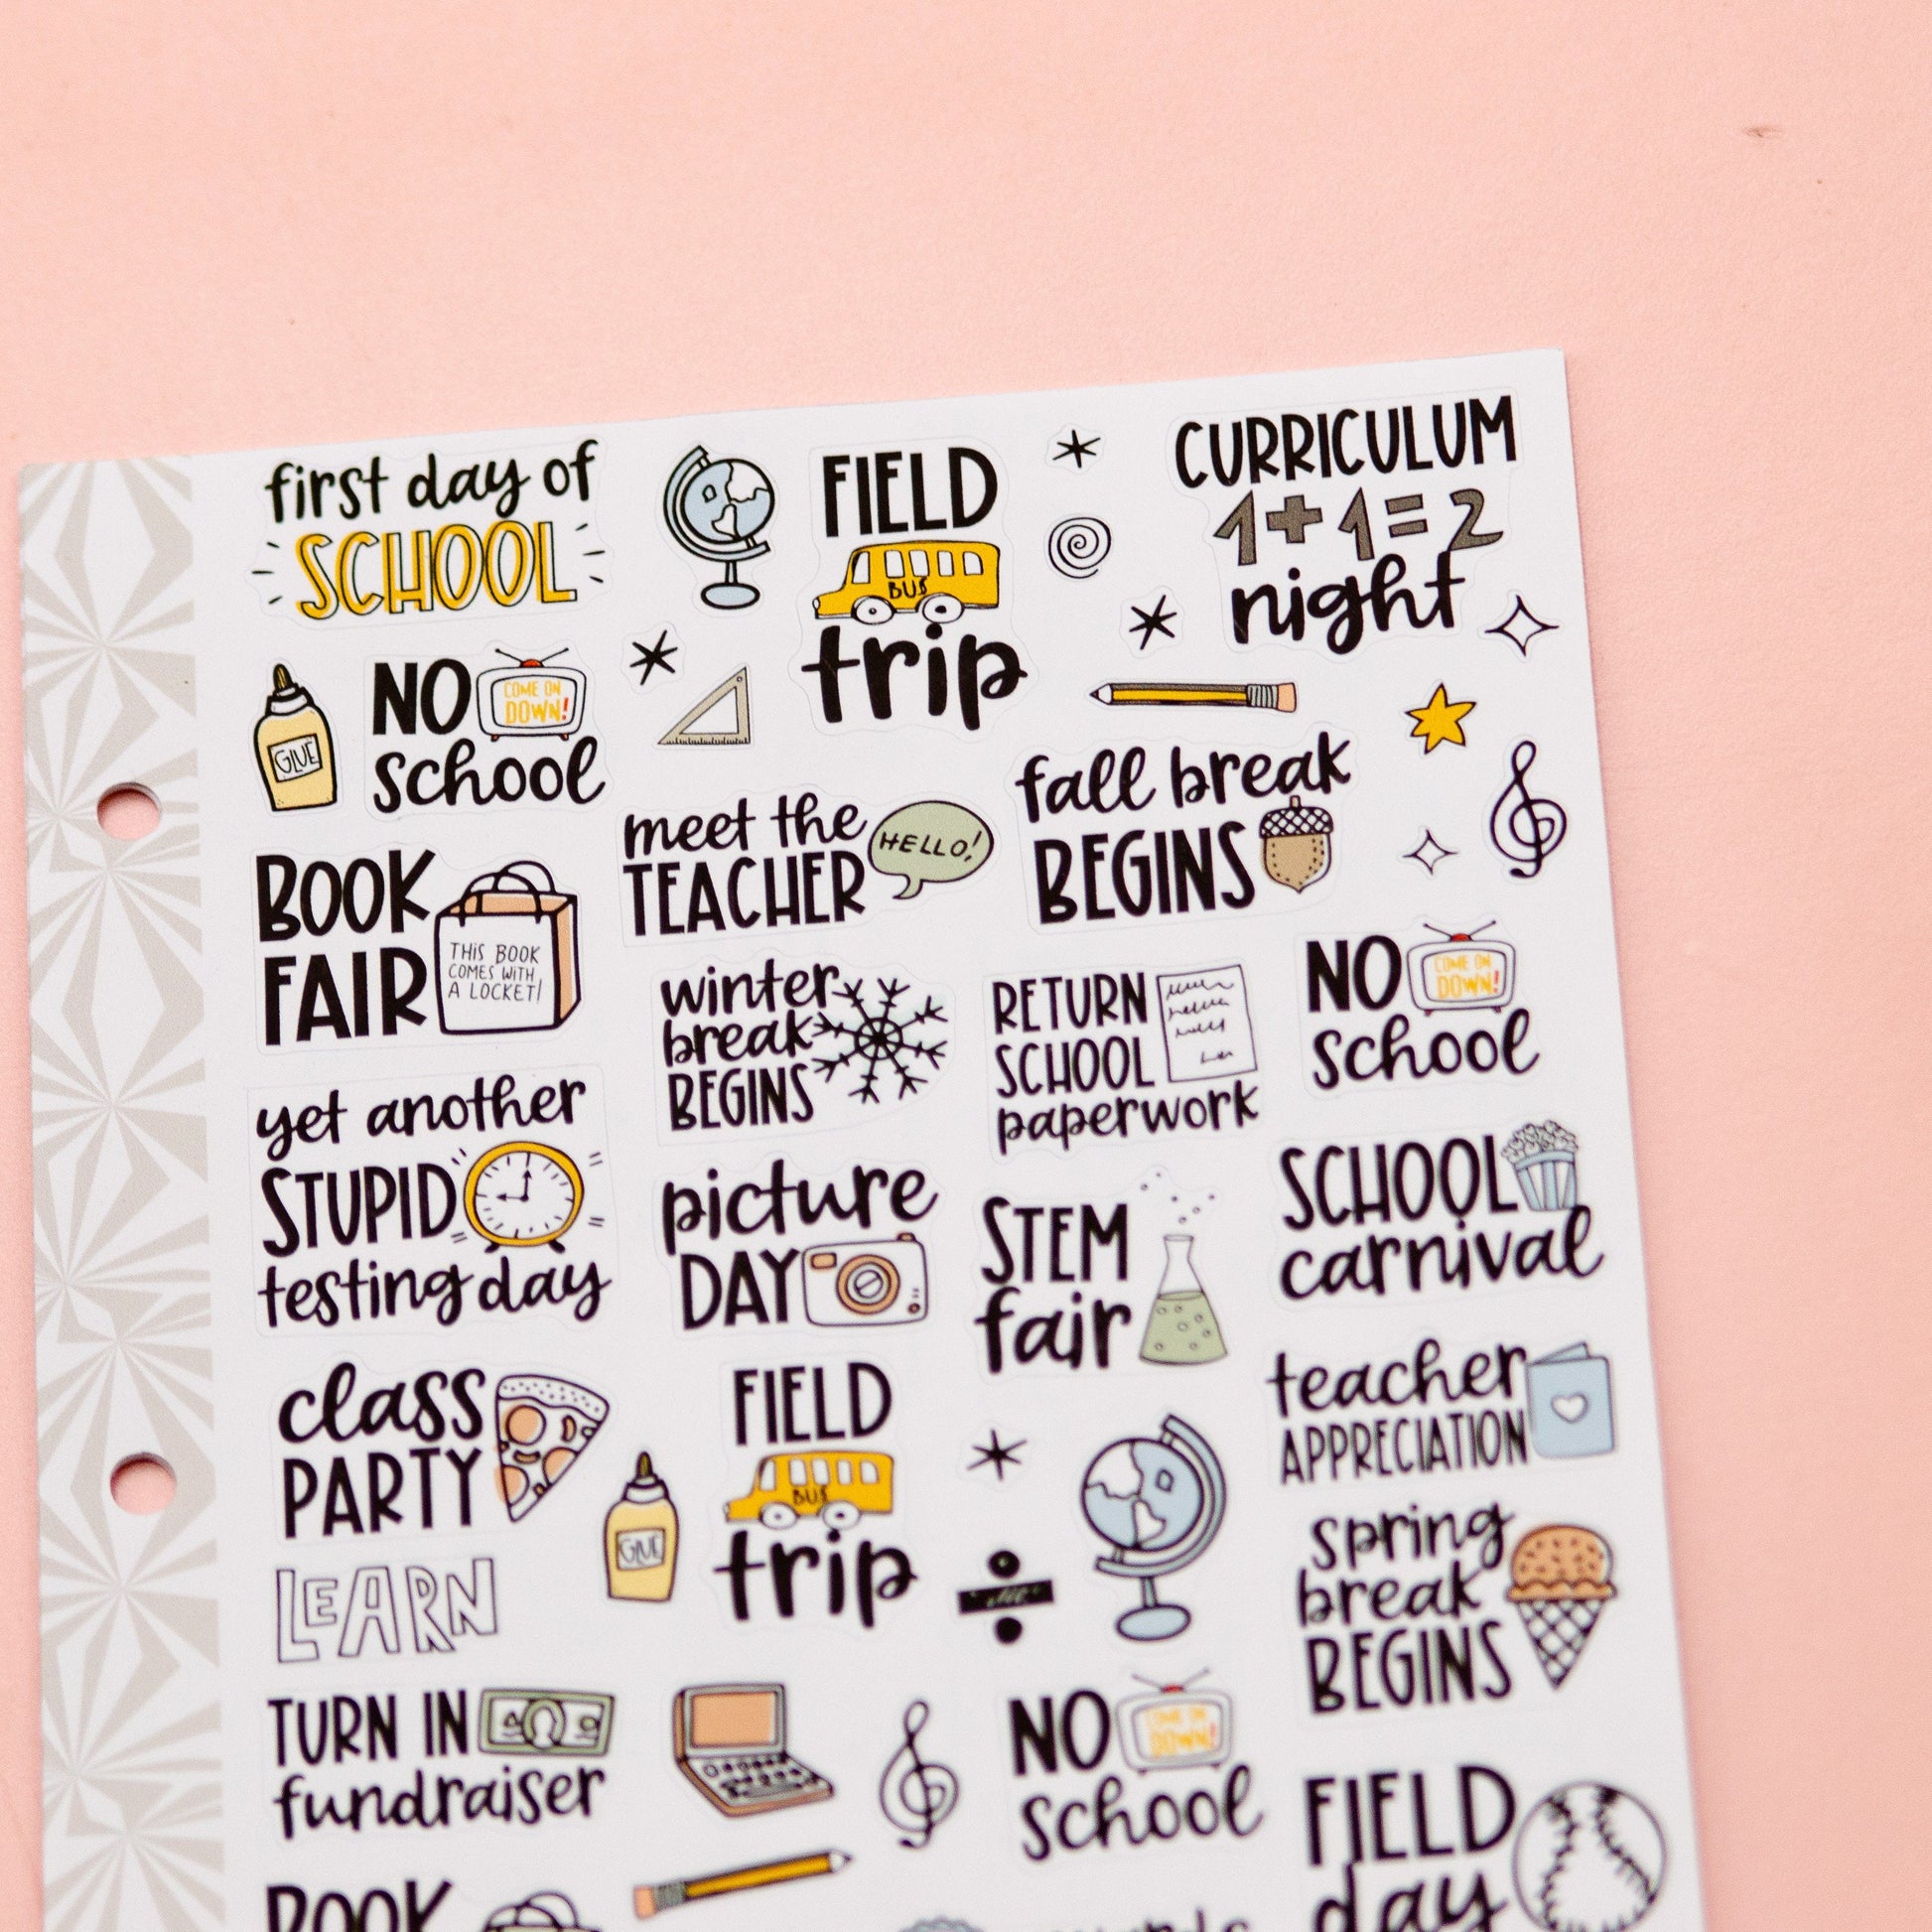 first day of
SCHOOL
FIELD
BUS
trip
CURRICULUM
1+1=2
night
GLUE
NO
COME ON
DOWN!
school
meet the
TEACHER
HELLO!
fall break
BEGINS
BOOK
FAIR
THIS BOOK
COMES WITH
A LOCKET!
winter
break
BEGINS
RETURN
SCHOOL
paperwork
NO
COME ON
DOWN!
school
yet another
STUPID
testing day
picture
DAY
STEM
fair
SCHOOL
carnival
class
PARTY
GLUE
FIELD
BUS
trip
teacher
APPRECIATION
LEARN
spring
break
BEGINS
TURN IN
fundraiser
NO
COME ON
DOWN!
school
FIELD
day
BOOK